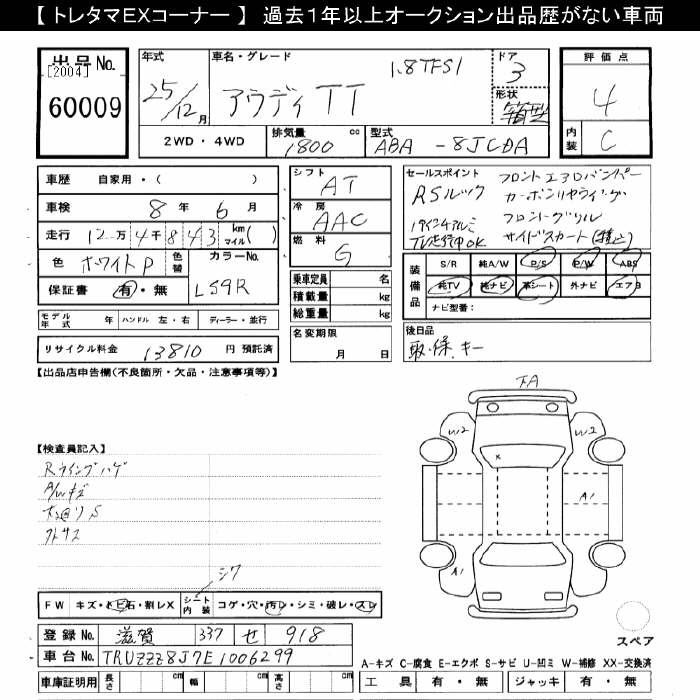 【 トレタマEXコーナー 】 過去1年以上オークション出品歴がない車両
出品No.
[2004]
60009
年式
25/12月
車名・グレード
1.8TFSI
アウディ TT
ドア
3
形状
箱型
評価点
4
内装
C
2WD・4WD
排気量
1800 cc
型式
ABA -8JCDA
車歴 自家用・( )
車検 8年 6月
走行 12万4千843 km マイル( )
色 ホワイトP 色替 カラーNo. LS9R
保証書 有・無
シフト
AT
冷房
AAC
燃料
G
乗車定員 名
積載量 kg
総重量 kg
セールスポイント
RSルック
TV走行中OK
フロントエアロバンパー
カーボンリヤウイング
フロントグリル
サイドスカート
装備品
S/R 純A/W P/S P/W ABS
純TV 純ナビ 革シート 外ナビ エアB
ナビ型番:
モデル年式 年 ハンドル 左・右 ディーラー・並行
リサイクル料金 13810 円 預託済
名変期限
月 日
後日品
取・保、キー
【出品店申告欄(不良箇所・欠品・注意事項等)】
下A
W2
W2
A1
A1
【検査員記入】
Rウイングハゲ
A/Wキズ
水回りS
下サス
シワ
FW キズ・トビ石・割レX シート内装 コゲ・穴・汚レ・シミ・破レ・スレ
登録No. 滋賀 337 せ 918
車台No. TRUZZZ8J7E1006299
車庫証明用 長さ cm 幅 cm 高さ cm
スペア
A-キズ C-腐食 E-エクボ S-サビ U-凹ミ W-補修 XX-交換済
工具 有・無 ジャッキ 有・無